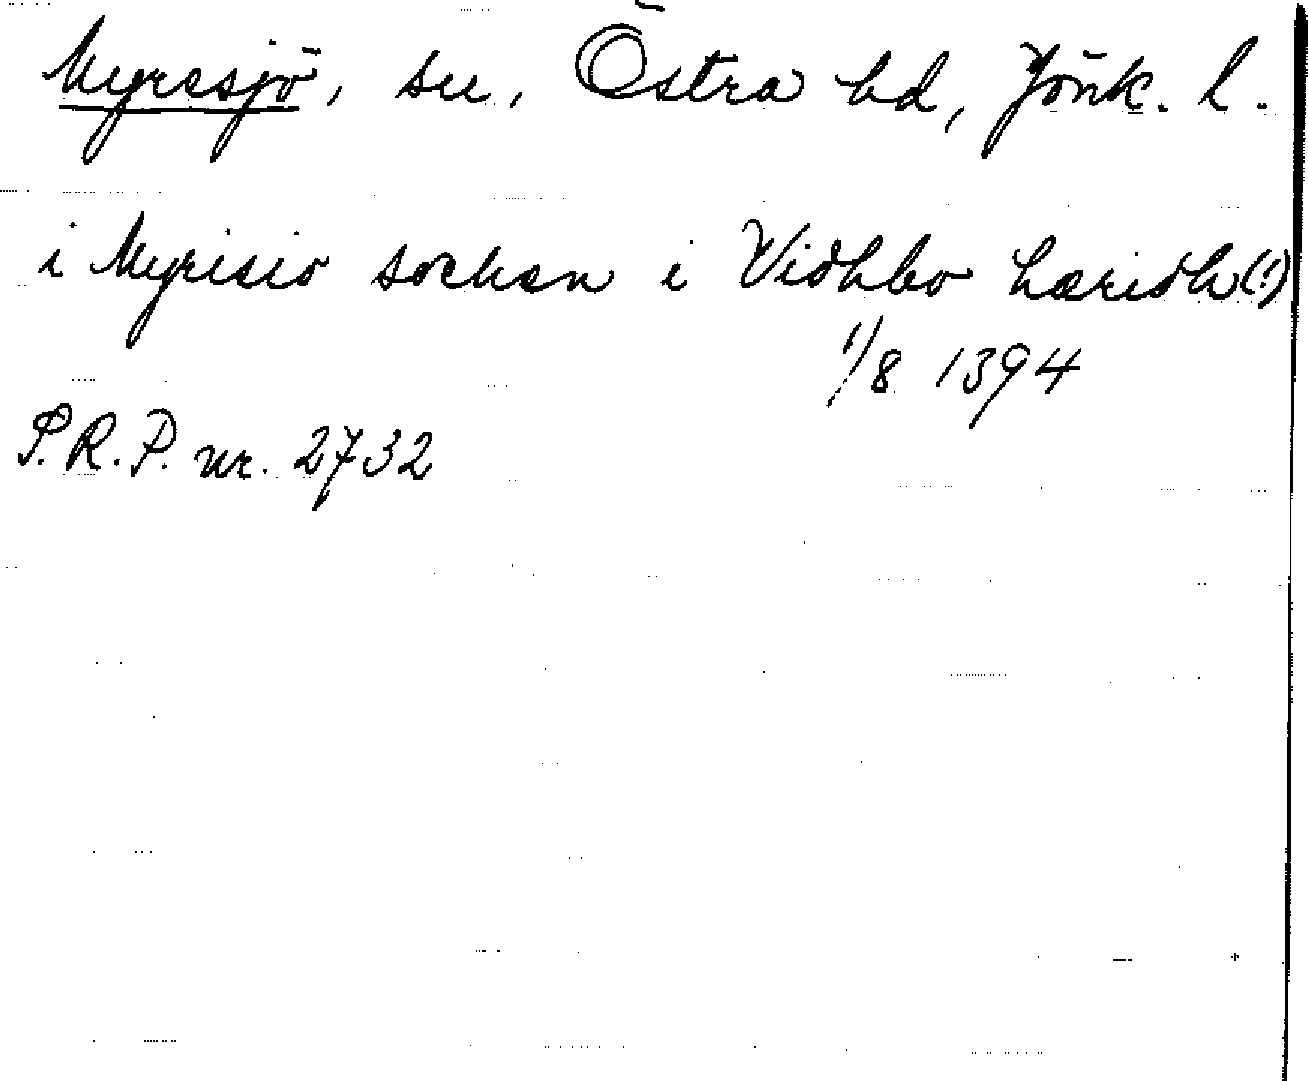 Myresjö, sn, Östra hd, Jönk. l.
i Myrisio sockan i Vidhbo hæridh(!)
1/8 1394
S.R.P. nr. 2732